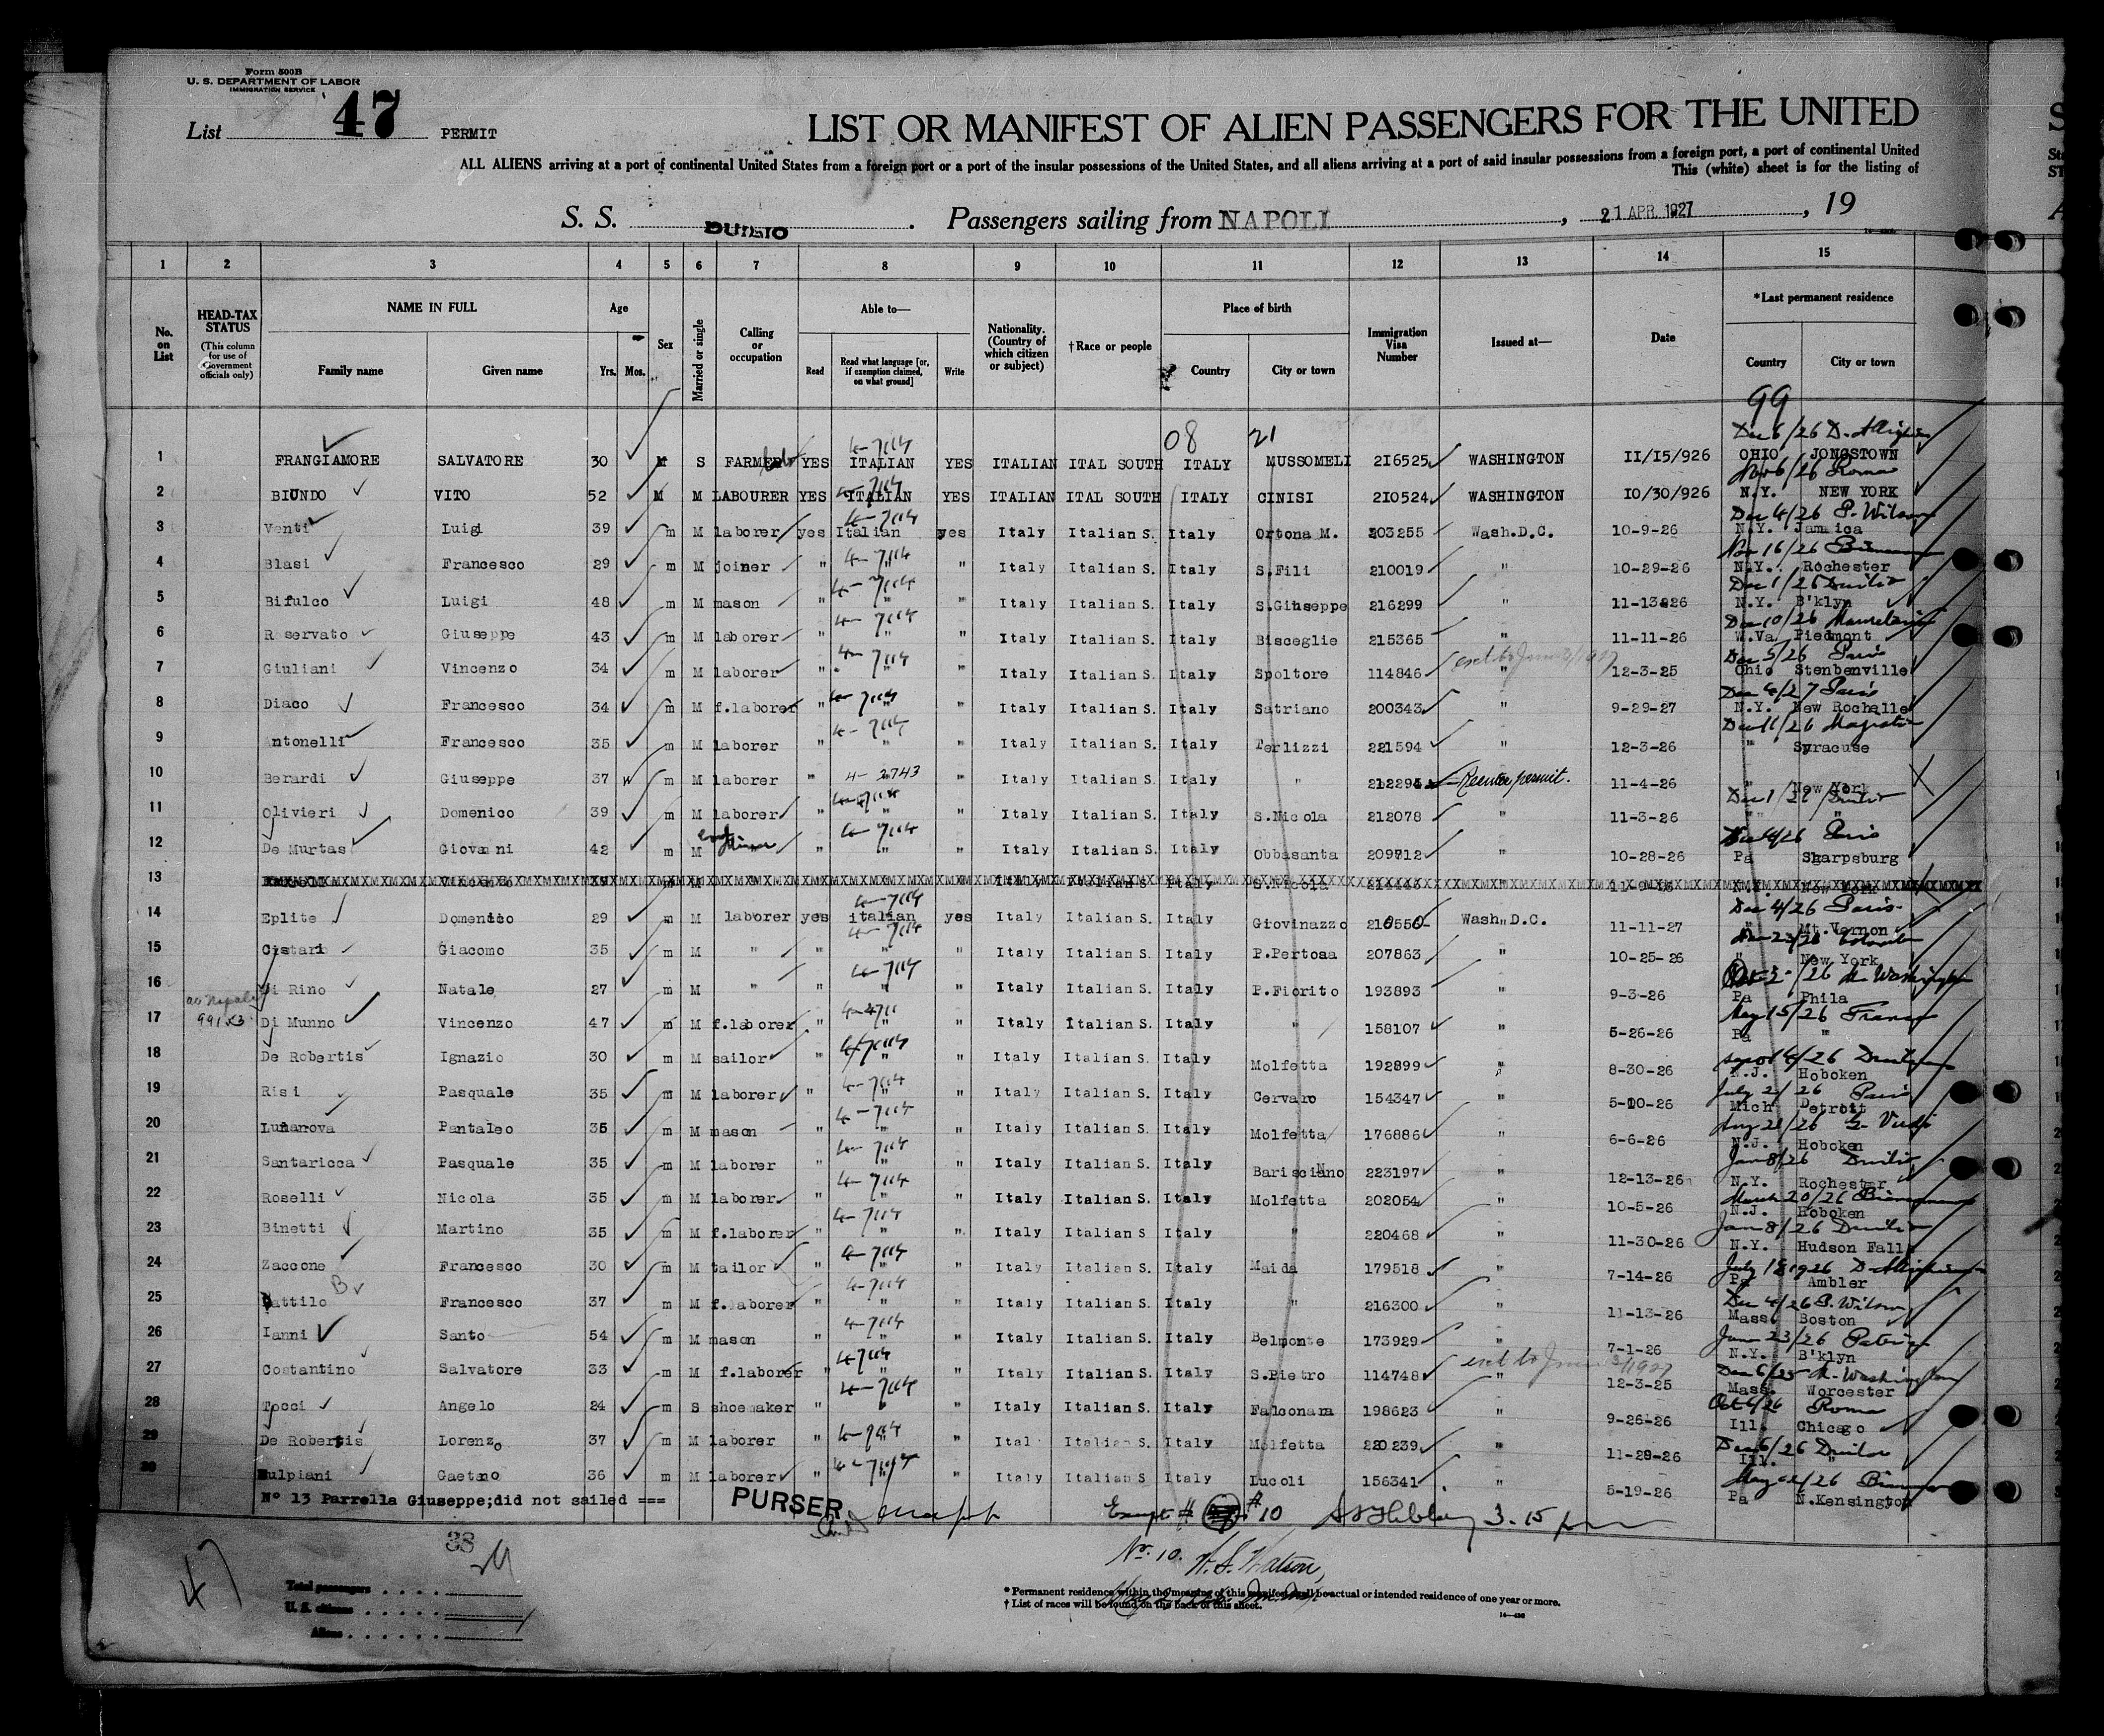 Form 500B
U. S. DEPARTMENT OF LABOR
IMMIGRATION SERVICE
List 47 PERMIT
LIST OR MANIFEST OF ALIEN PASSENGERS FOR THE UNITED
ALL ALIENS arriving at a port of continental United States from a foreign port or a port of the insular possessions of the United States, and all aliens arriving at a port of said insular possessions from a foreign port, a port of continental United
This (white) sheet is for the listing of
S. S. DUILIO. Passengers sailing from NAPOLI, 21 APR 1927, 19
1 2 3 4 5 6 7 8 9 10 11 12 13 14 15
No. on List
HEAD-TAX STATUS
(This column for use of Government officials only)
NAME IN FULL
Family name Given name
Age
Yrs. Mos.
Sex
Married or single
Calling or occupation
Able to—
Read Read what language [or, if exemption claimed, on what ground] Write
Nationality. (Country of which citizen or subject)
†Race or people
Place of birth
Country City or town
Immigration Visa Number
Issued at—
Date
*Last permanent residence
Country City or town
99
08 21
Dec 6/26 D. Alighieri
1 FRANGIAMORE SALVATORE 30 M S FARMER YES ITALIAN YES ITALIAN ITAL SOUTH ITALY MUSSOMELI 216525 WASHINGTON 11/15/926 OHIO JONGSTOWN
Nov 6/26 Roma
2 BIUNDO VITO 52 M M LABOURER YES ITALIAN YES ITALIAN ITAL SOUTH ITALY CINISI 210524 WASHINGTON 10/30/926 N.Y. NEW YORK
Dec 4/26 P. Wilson
3 Venti Luigi 39 m M laborer yes Italian yes Italy Italian S. Italy Ortona M. 203255 Wash.D.C. 10-9-26 N.Y. Jamaica
Nov 16/26
4 Blasi Francesco 29 m M joiner " " " Italy Italian S. Italy S.Fili 210019 " 10-29-26 N.Y. Rochester
Dec 1/26 Duilio
5 Bifulco Luigi 48 m M mason " " " Italy Italian S. Italy S.Giuseppe 216299 " 11-13-26 N.Y. B'klyn
Dec 10/26 Mauretania
6 Reservato Giuseppe 43 m M laborer " " " Italy Italian S. Italy Bisceglie 215365 " 11-11-26 W.Va Piedmont
Dec 5/26 Paris
7 Giuliani Vincenzo 34 m M laborer " " " Italy Italian S. Italy Spoltore 114846 " 12-3-25 Ohio Stenbenville
Dec 4/27 Paris
8 Diaco Francesco 34 m M f.laborer " " " Italy Italian S. Italy Satriano 200343 " 9-29-27 N.Y. New Rochelle
Dec 11/26 Majestic
9 Antonelli Francesco 35 m M laborer " " " Italy Italian S. Italy Terlizzi 221594 " 12-3-26 " Syracuse
10 Berardi Giuseppe 37 m M laborer " 4-2743 " Italy Italian S. Italy " 212294 Reenter permit. 11-4-26 " New York
Dec 1/26 Duilio
11 Olivieri Domenico 39 m M laborer " " " Italy Italian S. Italy S.Nicola 212078 " 11-3-26 " "
Dec 4/26 Paris
12 De Murtas Giovanni 42 m M " " " Italy Italian S. Italy Obbasanta 209712 " 10-28-26 Pa Sharpsburg
13
Dec 4/26 Paris
14 Eplite Domenico 29 m M laborer yes italian yes Italy Italian S. Italy Giovinazzo 216556 Wash.D.C. 11-11-27 " Mt.Vernon
15 Cistari Giacomo 35 m M " " " " Italy Italian S. Italy P.Pertosa 207863 " 10-25-26 " New York
Washington
16 Di Rino Natale 27 m M " " " " Italy Italian S. Italy P.Fiorito 193893 " 9-3-26 Pa Phila
May 15/26 France
17 Di Munno Vincenzo 47 m M f.laborer " " Italy Italian S. Italy " 158107 " 5-26-26 Pa "
18 De Robertis Ignazio 30 m M sailor " " " Italy Italian S. Italy Molfetta 192899 " 8-30-26 N.J. Hoboken
July 2/26 Paris
19 Risi Pasquale 35 m M laborer " " " Italy Italian S. Italy Cervaro 154347 " 5-10-26 Mich Detroit
Aug 21/26 G. Verdi
20 Lunanova Pantaleo 35 m M mason " " " Italy Italian S. Italy Molfetta 176886 " 6-6-26 N.J. Hoboken
Jan 8/26 Duilio
21 Santaricca Pasquale 35 m M laborer " " " Italy Italian S. Italy Barisciano 223197 " 12-13-26 N.Y. Rochester
March 20/26
22 Roselli Nicola 35 m M laborer " " " Italy Italian S. Italy Molfetta 202054 " 10-5-26 N.J. Hoboken
Jan 8/26 Duilio
23 Binetti Martino 35 m M f.laborer " " " Italy Italian S. Italy " 220468 " 11-30-26 N.Y. Hudson Fall
July 1926 D. Alighieri
24 Zaccone Francesco 30 m M tailor " " " Italy Italian S. Italy Maida 179518 " 7-14-26 Pa Ambler
Dec 4/26 P. Wilson
25 Battilo Francesco 37 m M f.laborer " " " Italy Italian S. Italy " 216300 " 11-13-26 Mass Boston
June 23/26 Patria
26 Ianni Santo 54 m M mason " " " Italy Italian S. Italy Belmonte 173929 " 7-1-26 N.Y. B'klyn
Dec 6/25 M. Washington
27 Costantino Salvatore 33 m M f.laborer " " " Italy Italian S. Italy S.Pietro 114748 " 12-3-25 Mass. Worcester
Oct 6/26 Roma
28 Tocci Angelo 24 m S shoemaker " " " Italy Italian S. Italy Falconara 198623 " 9-26-26 Ill. Chicago
Dec 6/26 Duilio
29 De Robertis Lorenzo 37 m M laborer " " " Italy Italian S. Italy Molfetta 220239 " 11-28-26 Ill. "
30 Gaetano 36 m M laborer " " " Italy Italian S Italy Lucoli 156341 " 5-19-26 Pa N.Kensington
No 13 Parrella Giuseppe;did not sailed ===
PURSER
Exempt # #10 3.15 pm
No. 10. H. S. Watson,
38
47
Total passengers
U. S. citizens
Aliens
* Permanent residence within the meaning of this manifest shall be actual or intended residence of one year or more.
† List of races will be found on the back of this sheet.
14—450